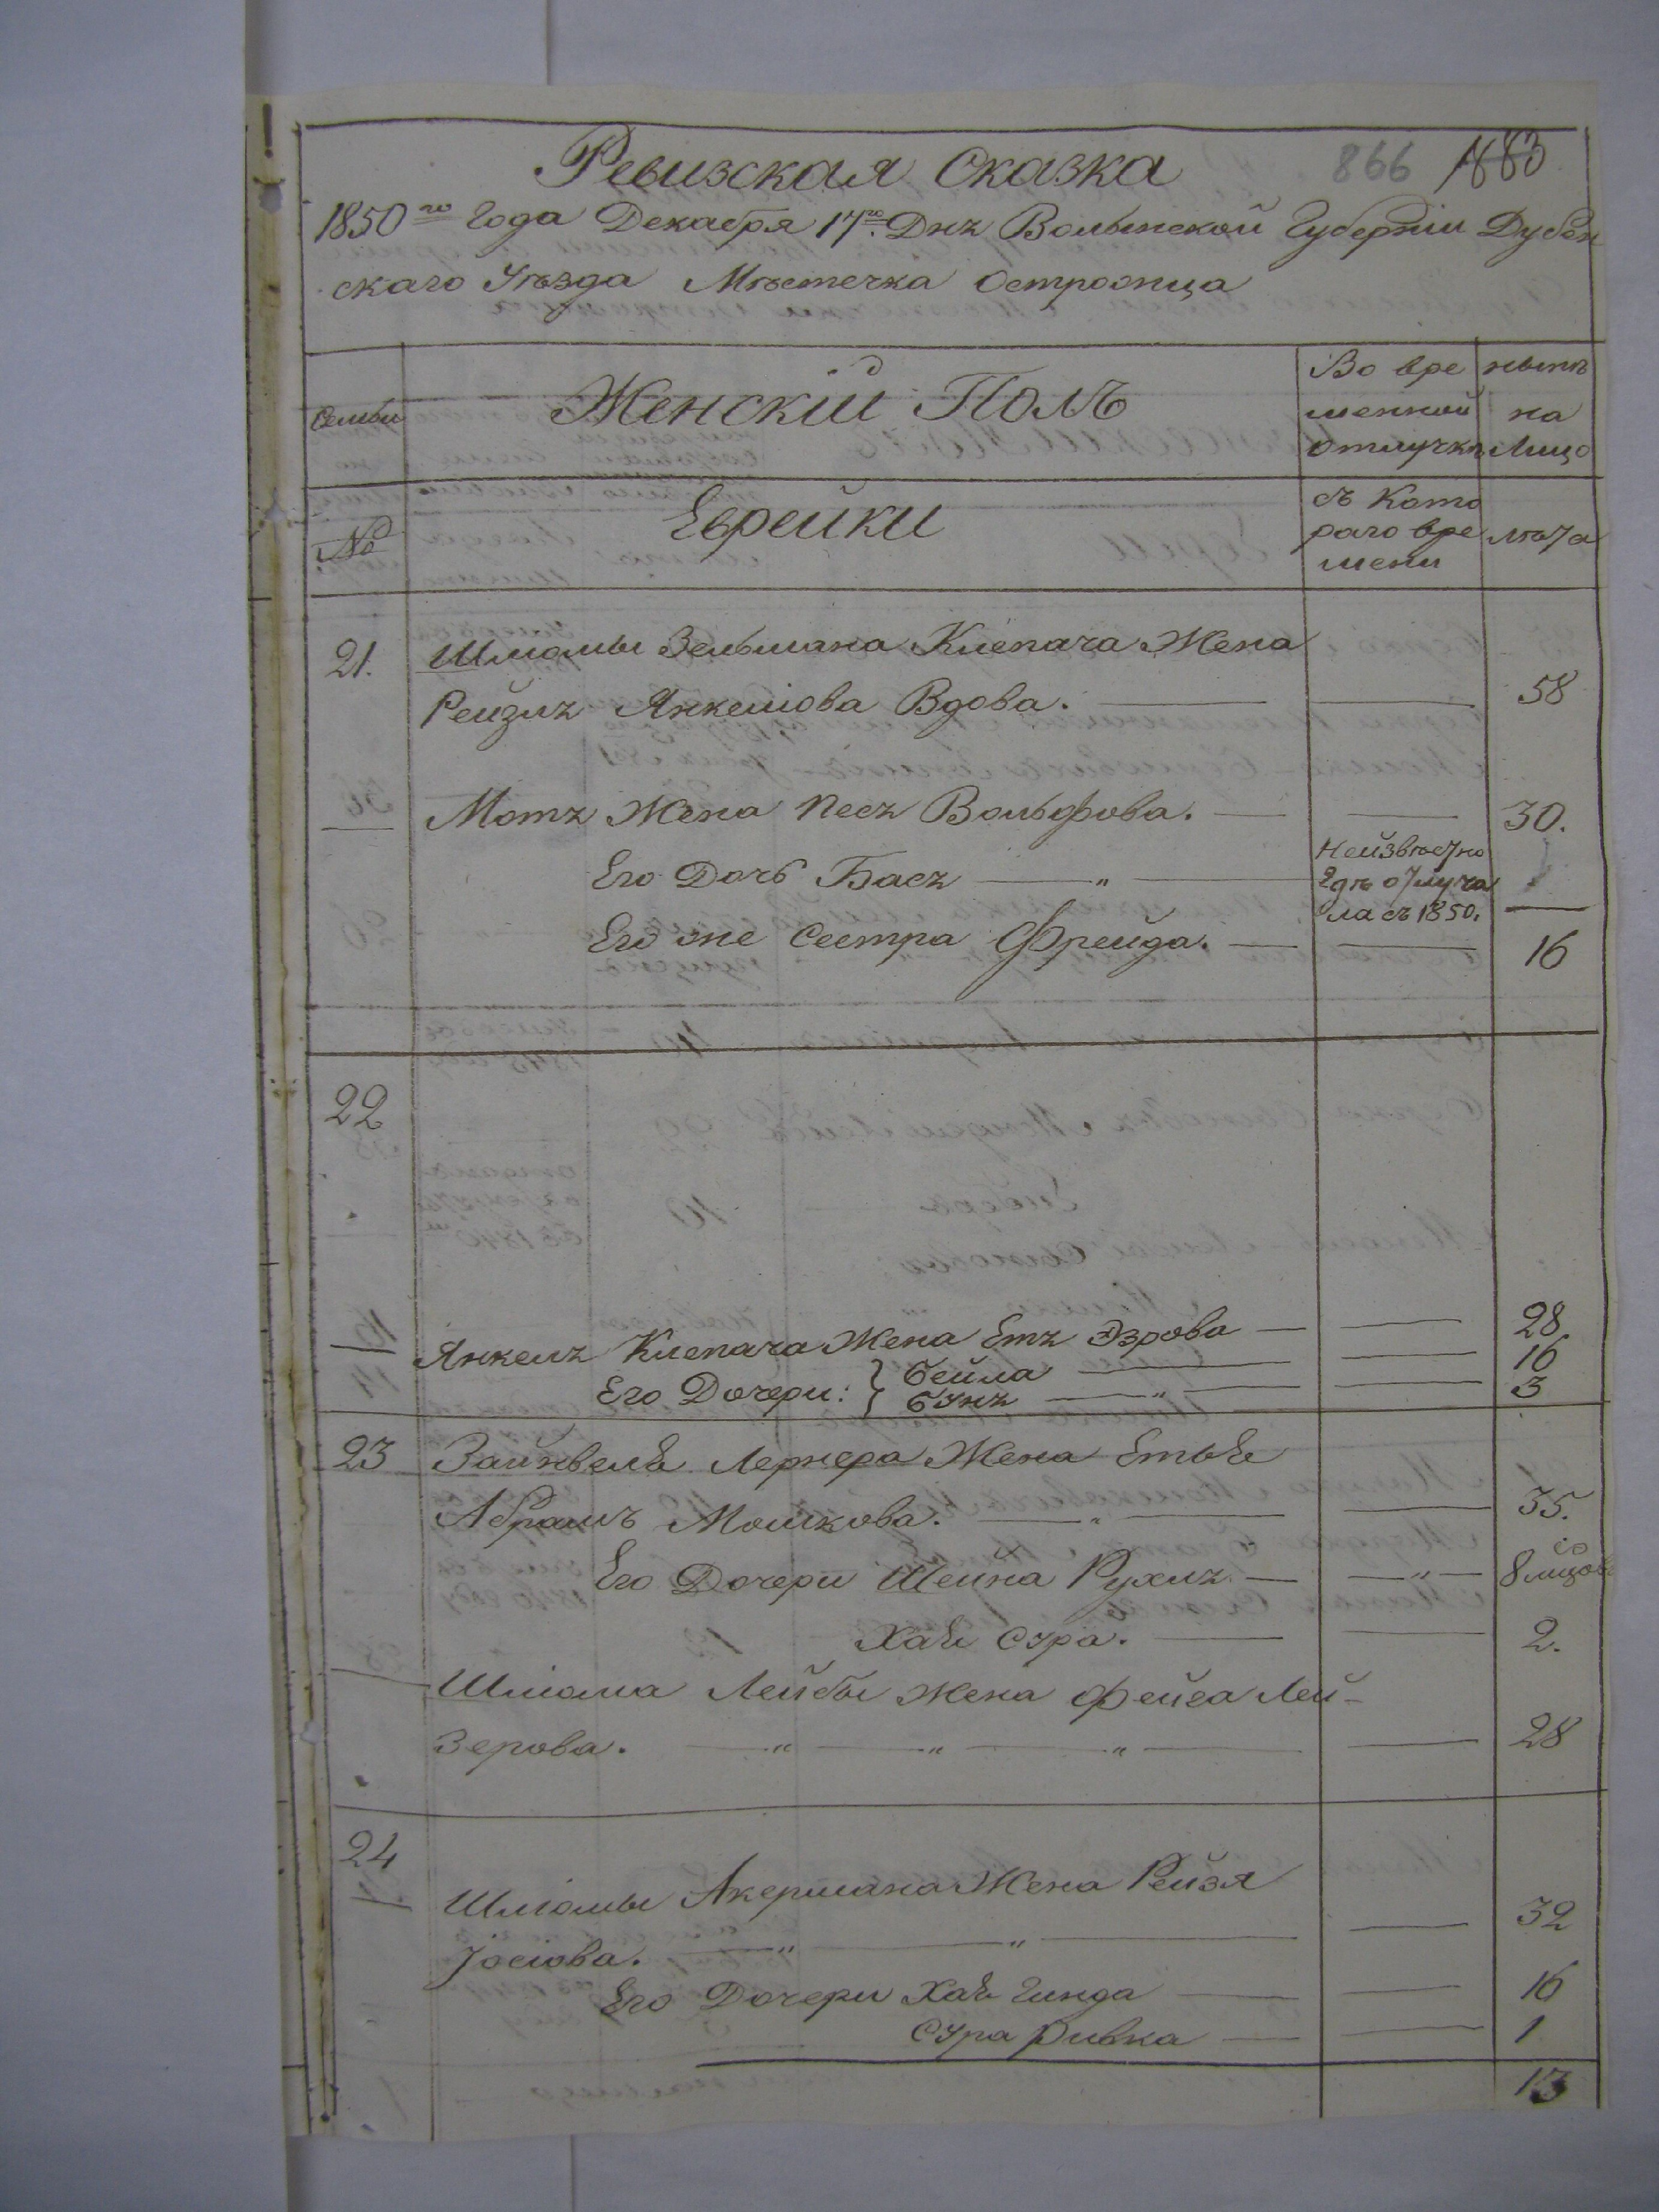 Ревизская Сказка 866 1883
1850го Года Декабря 17го Дня Волынской Губерніи Дубен
скаго Уѣзда Мѣстечка Остроопца
Семьи
Женскій Полъ
Во вре
менной
отлучкѣ
нынѣ
на
Лицо
№
Еврейки
съ Кото
раго вре
мени
лѣта
21. Шліомы Зельмана Клепача Жена
Рейзля Янкеліова Вдова. 58
Мотя Жена Песя Вольфова. 30.
Его Дочь Бася " Неизвѣстно
гдѣ отлуча
ла съ 1850.
Его же Сестра Фрейда. 16
22
Янкеля Клепача Жена Етя Эзрова 28
Его Дочери: } Бейла 16
Буня " 3
23 Зайнвеля Лернера Жена Етье
Абрамъ Мошкова. " 35.
Его Дочери Шейна Рухля " 8
Хае Сура. 2.
Шліома Лейбы Жена Фейга Лей-
зерова. " " " 28
24
Шліомы Акермана Жена Рейзя
Іосіова. " " 32
Его Дочери Хае Гинда 16
Сура Ривка 1
13